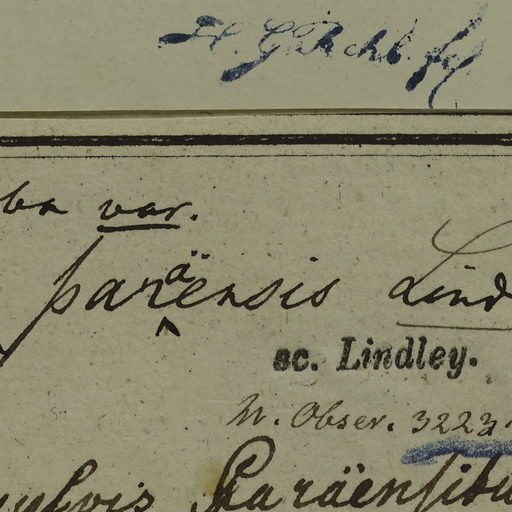 H. G. Rchb. fil
ba var.
paraënsis Lind
sc. Lindley.
N. Obser. 3223.
sylvis Paraënsibu